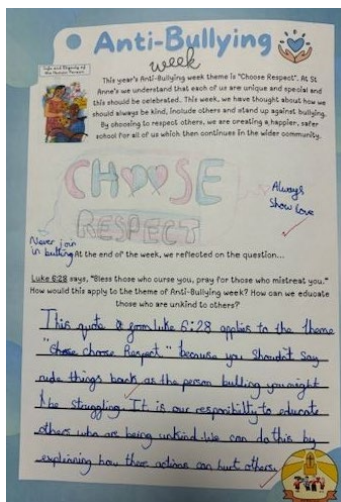 Anti-Bullying
week
Life and Dignity of
the Human Person
This year's Anti-Bullying week theme is "Choose Respect". At St
Anne's we understand that each of us are unique and special and
this should be celebrated. This week, we have thought about how we
should always be kind, include others and stand up against bullying.
By choosing to respect others, we are creating a happier, safer
school for all of us which then continues in the wider community.
CHOOSE
RESPECT
Always
Show love
Never join
in bullying
At the end of the week, we reflected on the question...
Luke 6:28 says, "Bless those who curse you, pray for those who mistreat you."
How would this apply to the theme of Anti-Bullying week? How can we educate
those who are unkind to others?
This quote from luke 6:28 applies to the theme
"choose Respect" because you shouldn't say
rude things back as the person bulling you might
be struggling. It is our responsibilty to educate
others who are being unkind. We can do this by
explinning how there actions can hurt others.